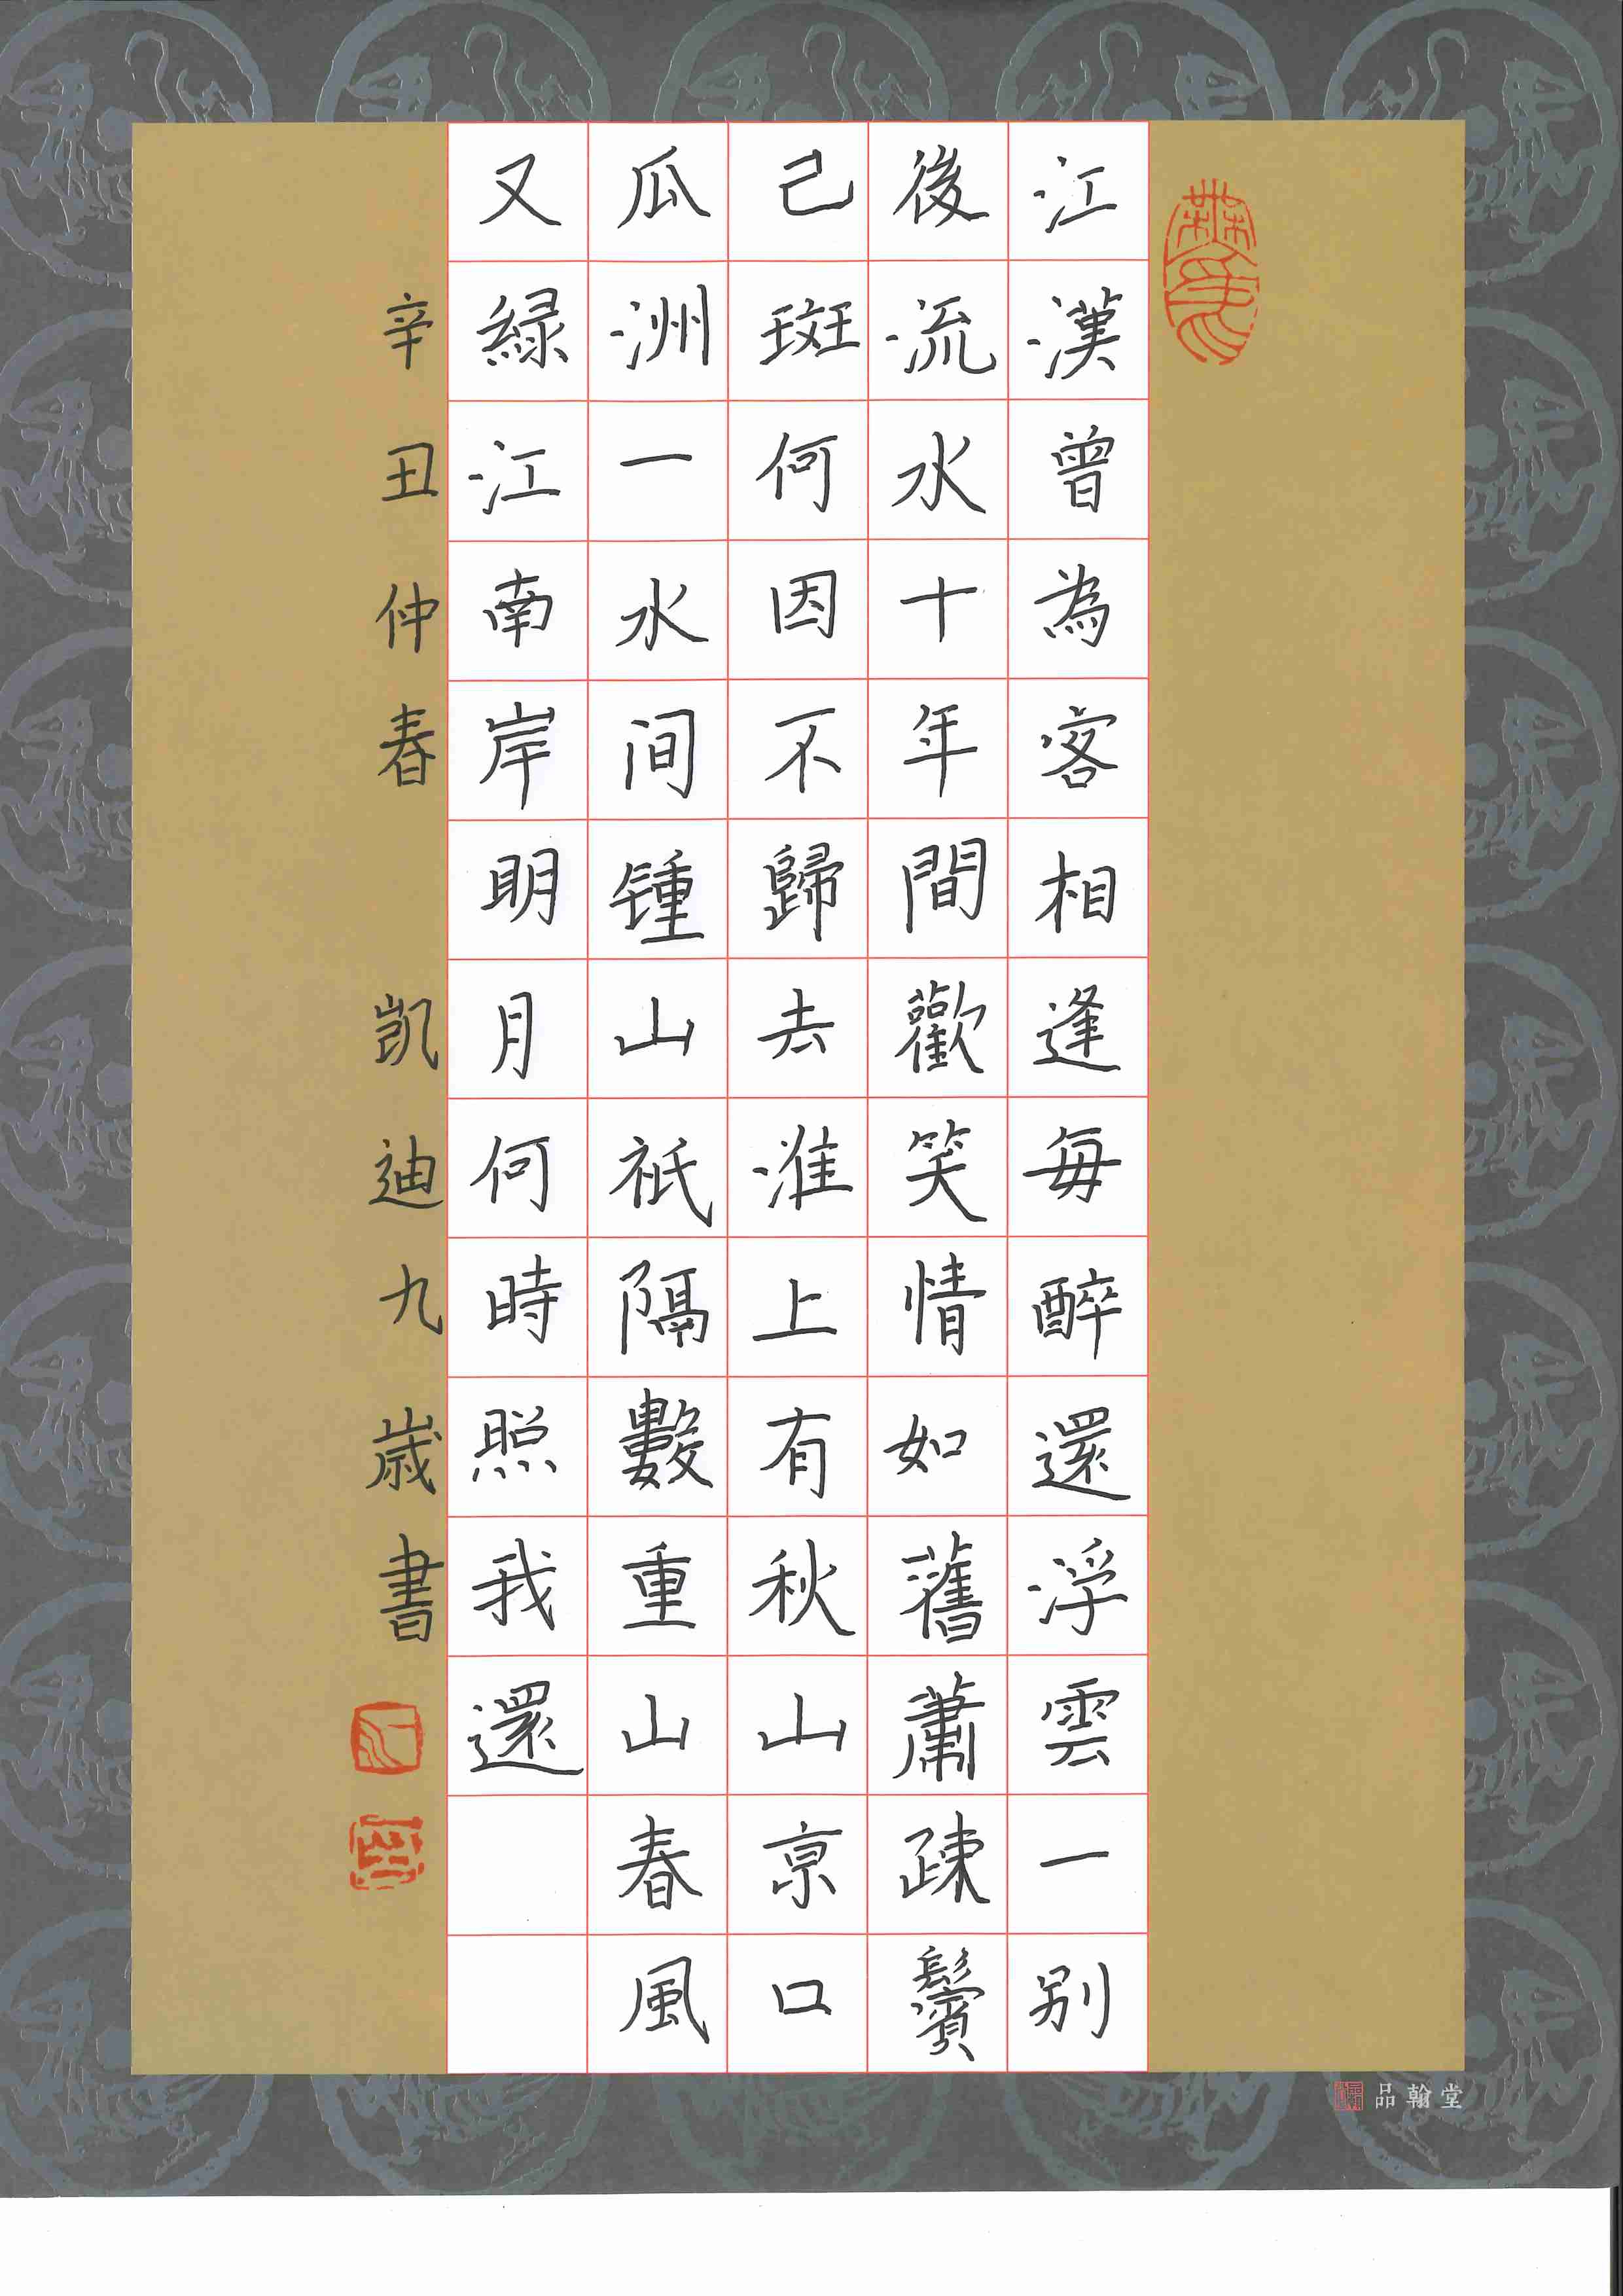 江漢曾為客相逢每醉還浮雲一别
後流水十年間歡笑情如舊蕭疎鬢
己斑何因不歸去淮上有秋山京口
瓜洲一水间锺山祇隔數重山春風
又緑江南岸明月何時照我還
辛丑仲春 凱迪九歳書
品翰堂